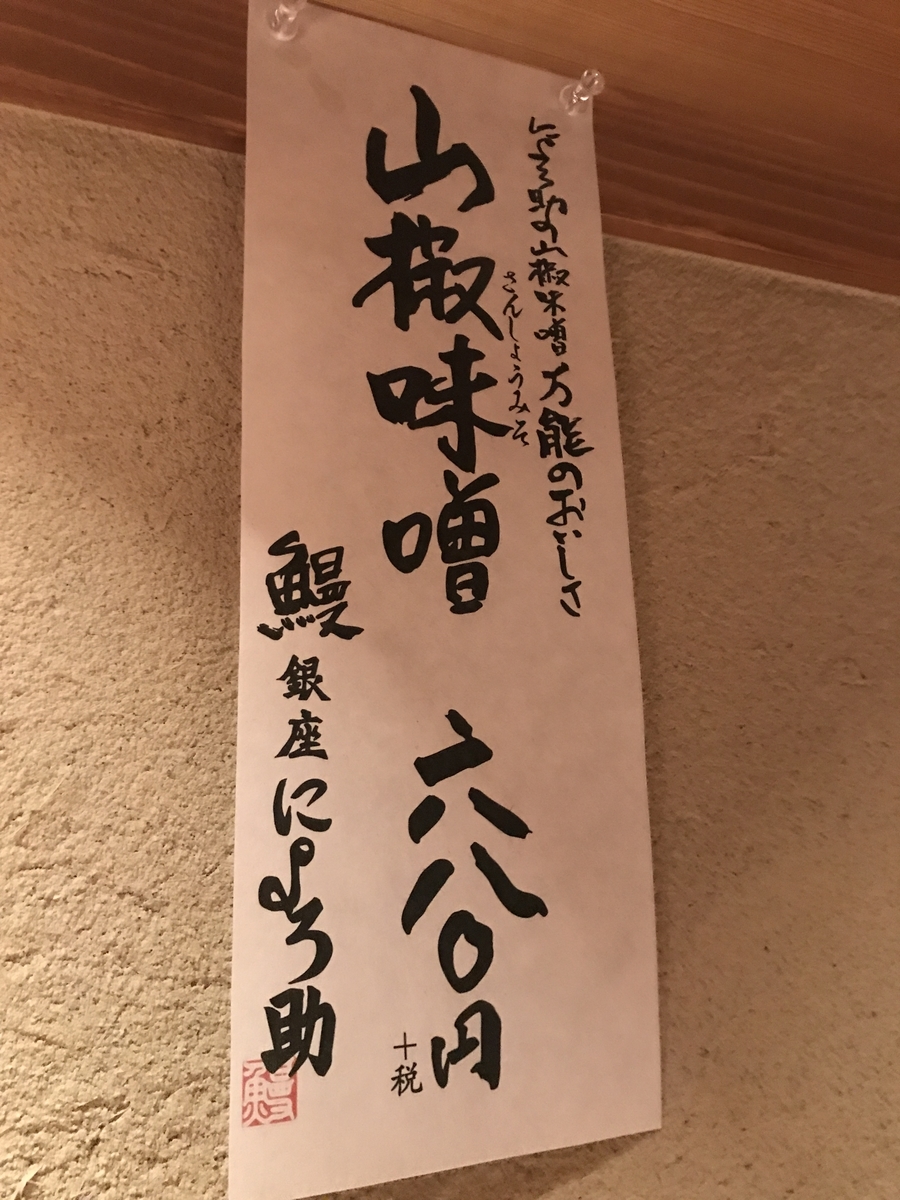 にょろ助の山椒味噌万能のおいしさ
さんしょうみそ
山椒味噌 六八〇円
+税
鰻銀座にょろ助
鰻